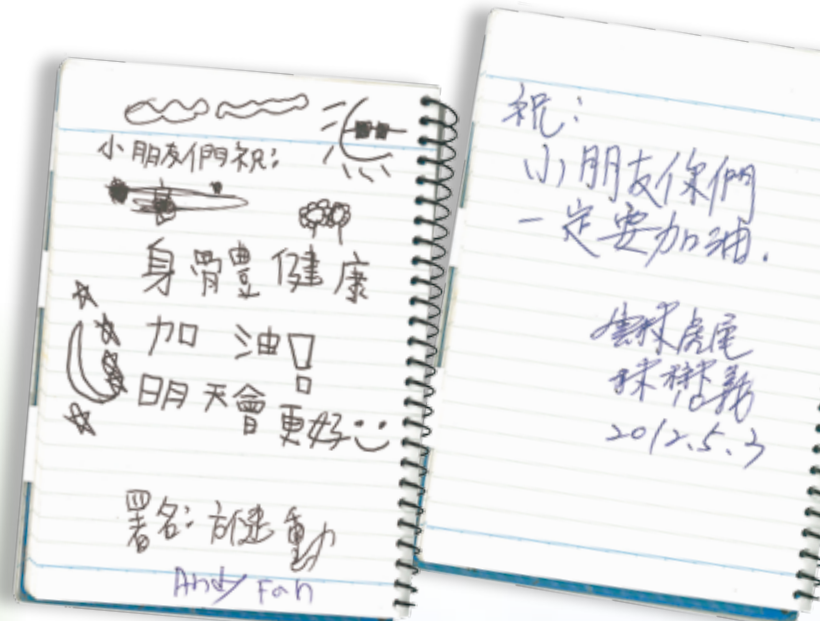 小朋友們祝:
身體健康
加油!
明天會更好
署名: 方健勳
Andy Fan
祝:
小朋友你們
一定要加油.
雲林虎尾
2012.5.3